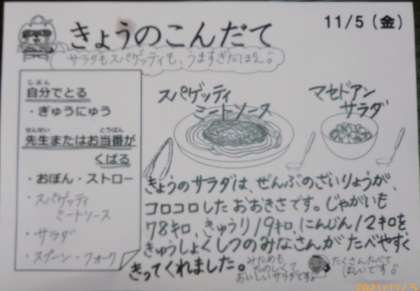 きょうのこんだて
11/5（金）
サラダもスパゲッティも、うますぎたにゃん。
自分でとる
・ぎゅうにゅう
先生またはお当番が
くばる
・おぼん・ストロー
・スパゲッティ
ミートソース
・サラダ
・スプーン・フォーク
スパゲッティ
ミートソース
マセドアン
サラダ
きょうのサラダは、ぜんぶのざいりょうが、
コロコロしたおおきさです。じゃがいも
78キロ、きゅうり19キロ、にんじん12キロを
きゅうしょくしつのみなさんが、たべやすく
きってくれました。
みためも
たのしくて
おいしいサラダですよ
たくさんたべて
ほしいです。